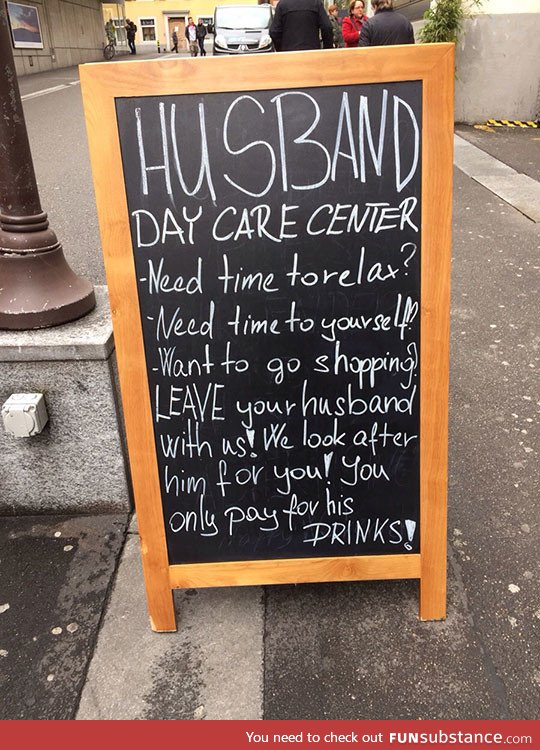 HUSBAND
DAY CARE CENTER
-Need time to relax?
-Need time to yourself?
-Want to go shopping?
LEAVE your husband
with us! We look after
him for you! You
only pay for his
DRINKS!
You need to check out FUNsubstance.com